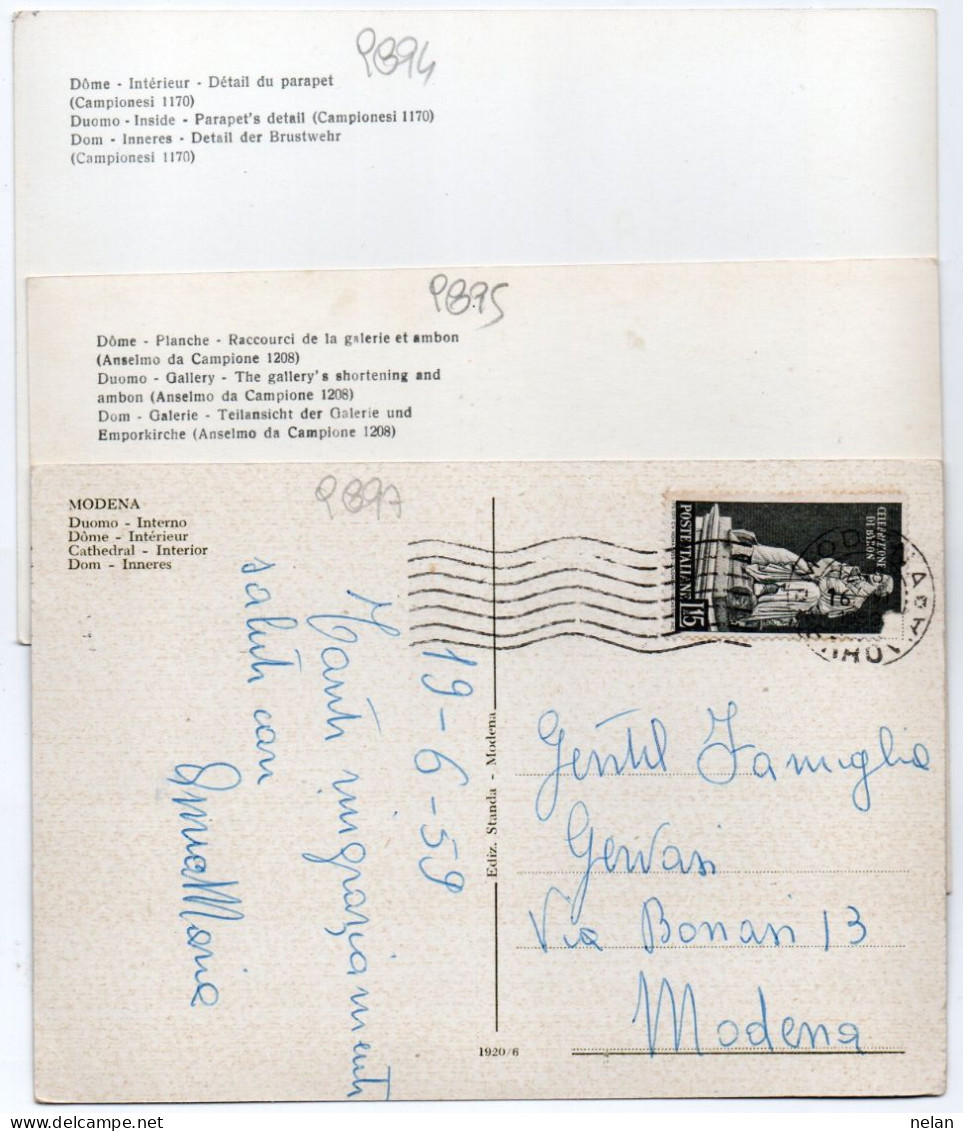 P894
Dôme - Intérieur - Détail du parapet
(Campionesi 1170)
Duomo - Inside - Parapet's detail (Campionesi 1170)
Dom - Inneres - Detail der Brustwehr
(Campionesi 1170)
P895
Dôme - Planche - Raccourci de la galerie et ambon
(Anselmo da Campione 1208)
Duomo - Gallery - The gallery's shortening and
ambon (Anselmo da Campione 1208)
Dom - Galerie - Teilansicht der Galerie und
Emporkirche (Anselmo da Campione 1208)
P897
MODENA
Duomo - Interno
Dôme - Intérieur
Cathedral - Interior
Dom - Inneres
19-6-59
Tanti ringraziamenti
saluti cari
Maria
Ediz. Standa - Modena
1920/6
POSTE ITALIANE
15
16
Gentil Famiglia
Gervasi
Via Bonasi 13
Modena
nelan